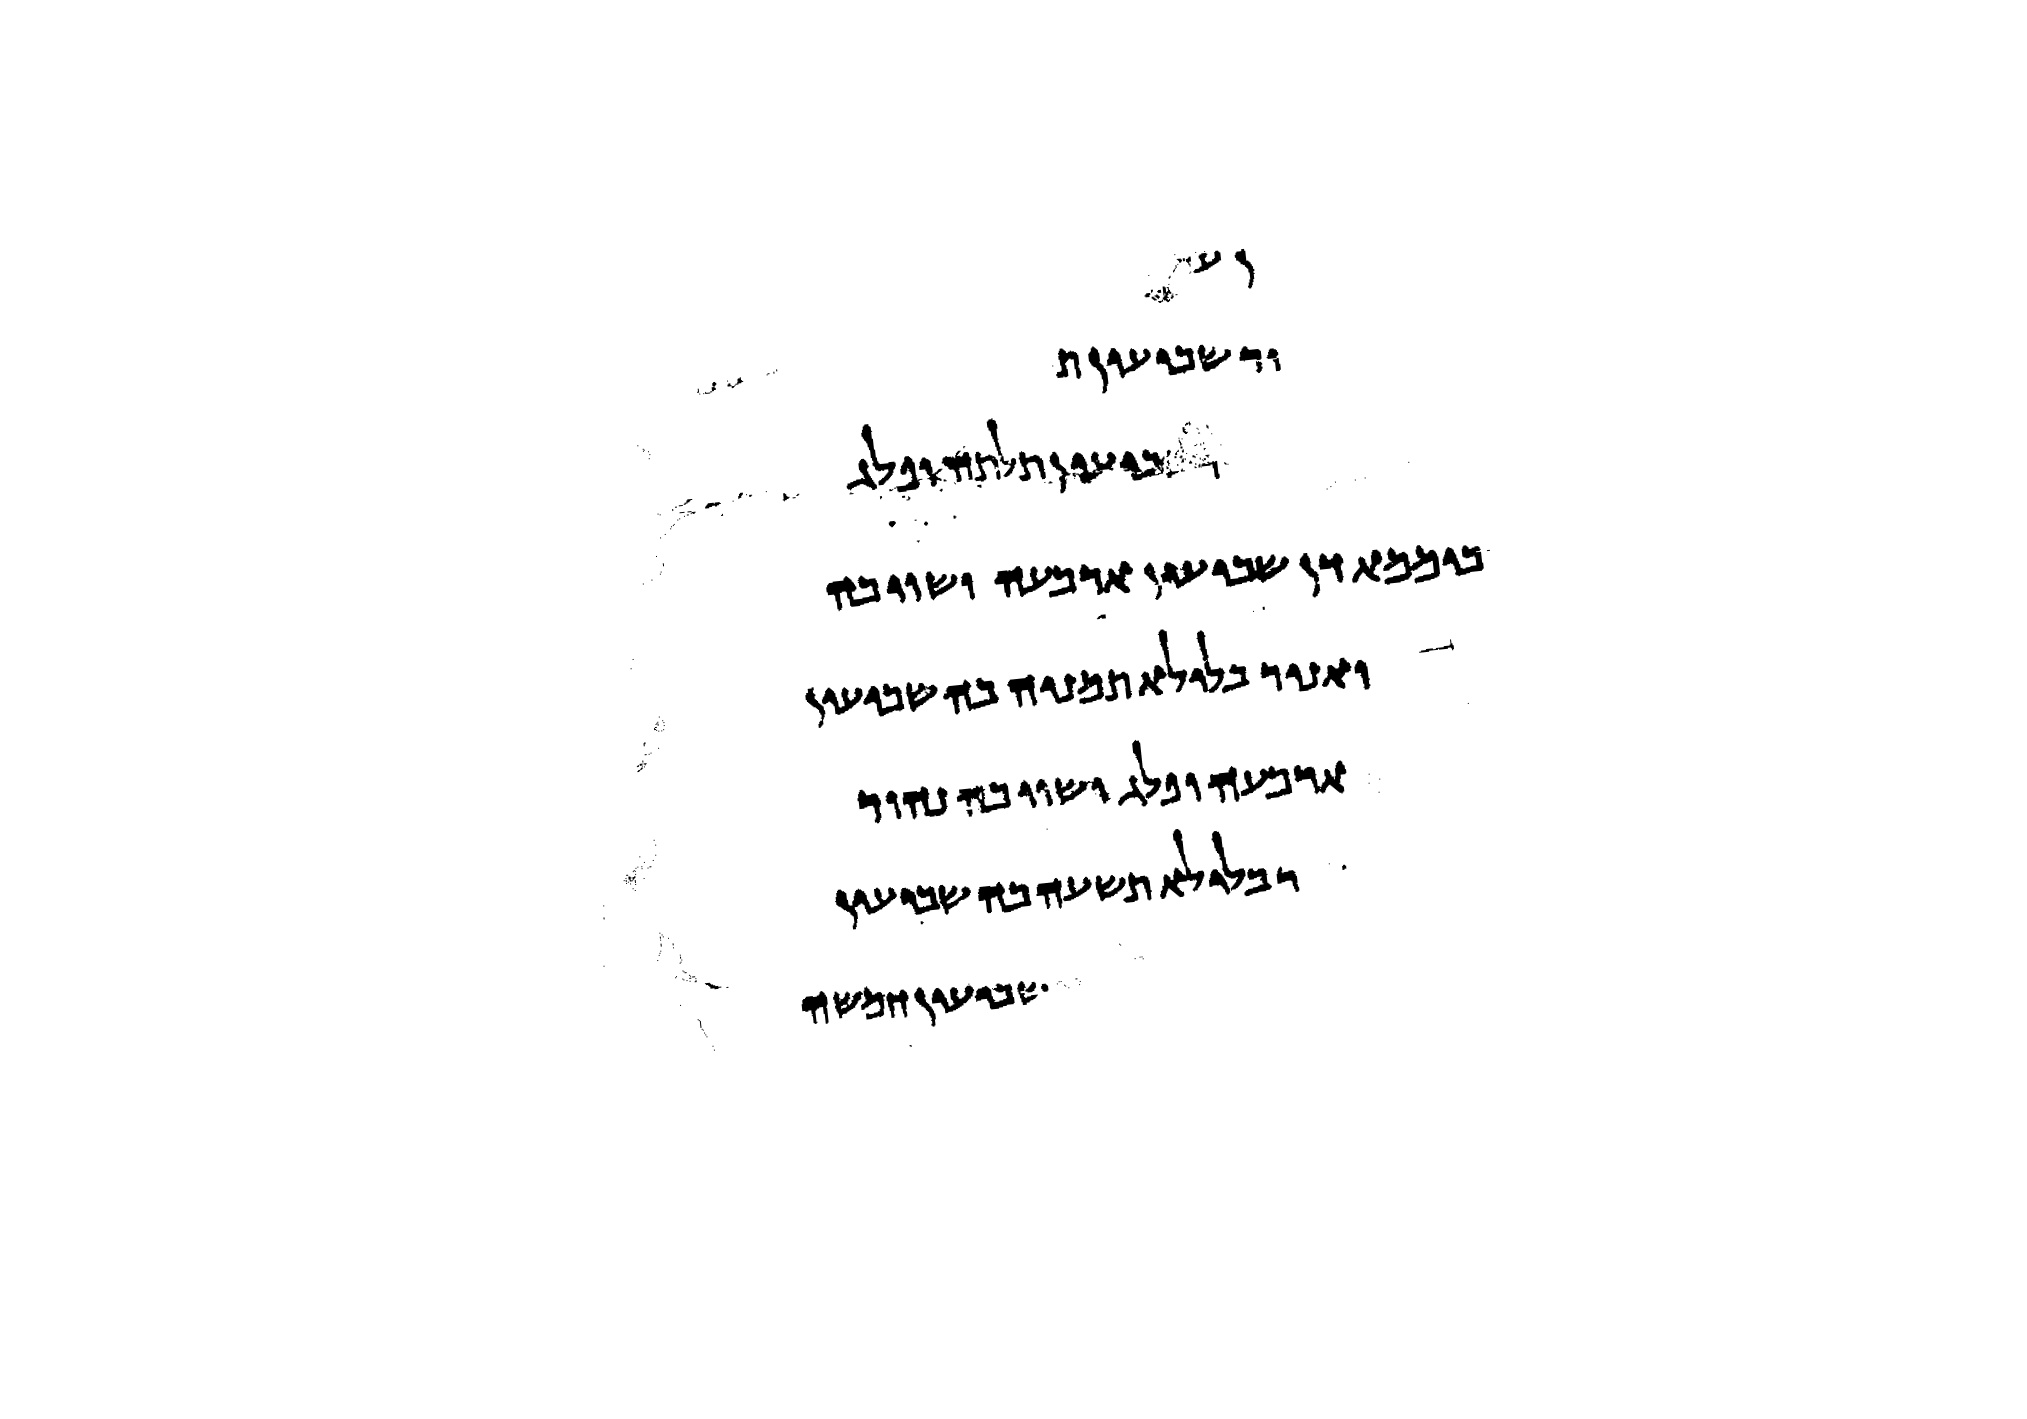 ן ע
יר שביעין ת
שביעין תלתה ופלג
ביממא דן שביעין ארבעה ושוי בה
ואניר בליליא תמניה בה שביעין
ארבעה ופלג ושוי בה נהור
ר בליליא תשעה בה שביעין
שביעין חמשה